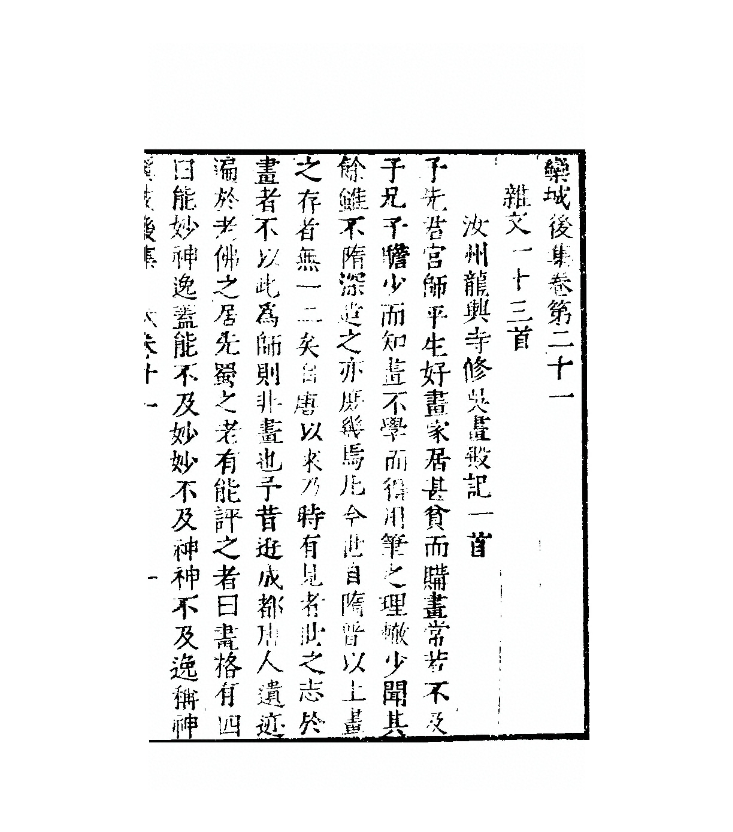 欒城後集卷第二十一
雜文一十三首
汝州龍興寺修吳畫殿記一首
予先君宮師平生好畫家居甚貧而購畫常若不及
予兄子瞻少而知畫不學而得用筆之理轍少聞其
餘雖不隋深造之亦庶幾焉凡今世自隋晉以上畫
之存者無一二矣自唐以來乃時有見者世之志於
畫者不以此爲師則非畫也予昔遊成都唐人遺迹
遍於老佛之居先蜀之老有能評之者曰畫格有四
曰能妙神逸蓋能不及妙妙不及神神不及逸稱神
後集 卷廿一 一